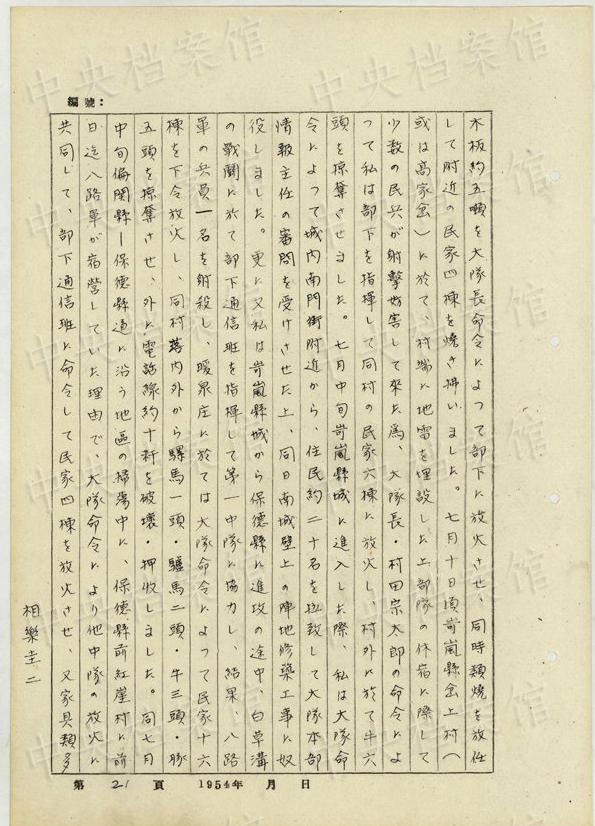 編號：
木板約五噸を大隊長命令によって部下に放火させ、同時類焼を放任
して附近の民家四棟を焼き拂いました。七月十日頃岢嵐縣岔上村（
或は髙家岔）に於て、村端に地雷を埋設した上部隊の休宿に際して
少数の民兵が射撃妨害して来た為、大隊長・村田宗太郎の命令によ
って私は部下を指揮して同村の民家六棟に放火し、村外に於て牛六
頭を掠奪させました。七月中旬岢嵐縣城に進入した際、私は大隊命
令によって城内南門街附近から、住民約二十名を拉致して大隊本部
情報主任の審問を受けさせた上、同日南城壁上の陣地修築工事に奴
役しました。更に又私は岢嵐縣城から保德縣に進攻の途中、白草溝
の戰闘に於て部下通信班を指揮して第一中隊に協力し、結果、八路
軍の兵員一名を射殺し、暖泉庄に於ては大隊命令によって民家十六
棟を下令放火し、同村落内外から騾馬一頭・驢馬二頭・牛三頭・豚
五頭を掠奪させ、外に電話線約十粁を破壊・押收しました。同七月
中旬偏関縣―保德縣道に沿う地區の掃蕩中に、保德縣前紅崖村に前
日迄八路軍が宿営していた理由で、大隊命令により他中隊の放火に
共同して、部下通信班に命令して民家四棟を放火させ、又家具類多
相樂圭二
第 21 頁 1954年 月 日
中央档案馆